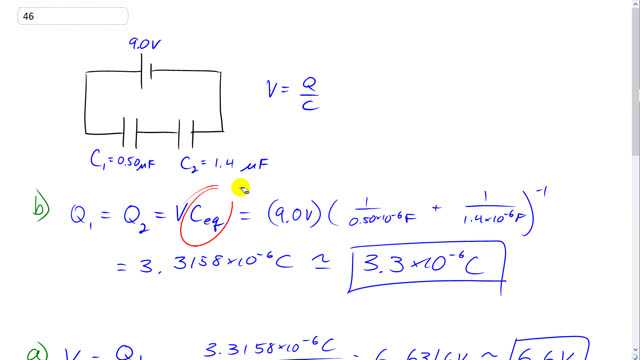 46
9.0V
V = Q/C
C₁=0.50µF C₂=1.4 µF
b) Q₁ = Q₂ = V Ceq = (9.0V) ( 1/0.50×10⁻⁶F + 1/1.4×10⁻⁶F )⁻¹
= 3.3158×10⁻⁶C ≃ 3.3×10⁻⁶C
a) V = Q₁ 3.3158×10⁻⁶C